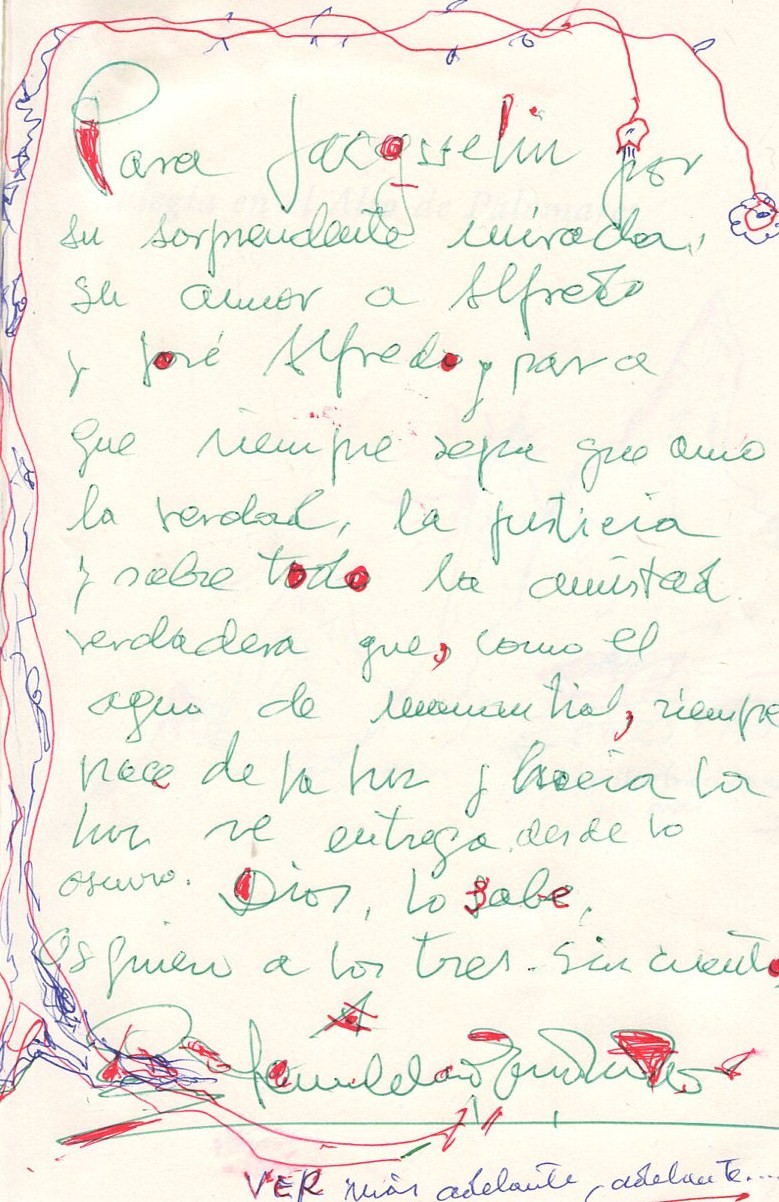 Para Jacqueline por
su sorprendente mirada,
su amor a Alfredo
y José Alfredo y para
que siempre sepa que amo
la verdad, la justicia
y sobre todo la amistad
verdadera que, como el
agua de manantial, siempre
nace de la luz y hacia la
luz se entrega desde lo
oscuro. Dios, lo sabe,
Os quiero a los tres. Sin cuento,
VER más adelante, adelante....